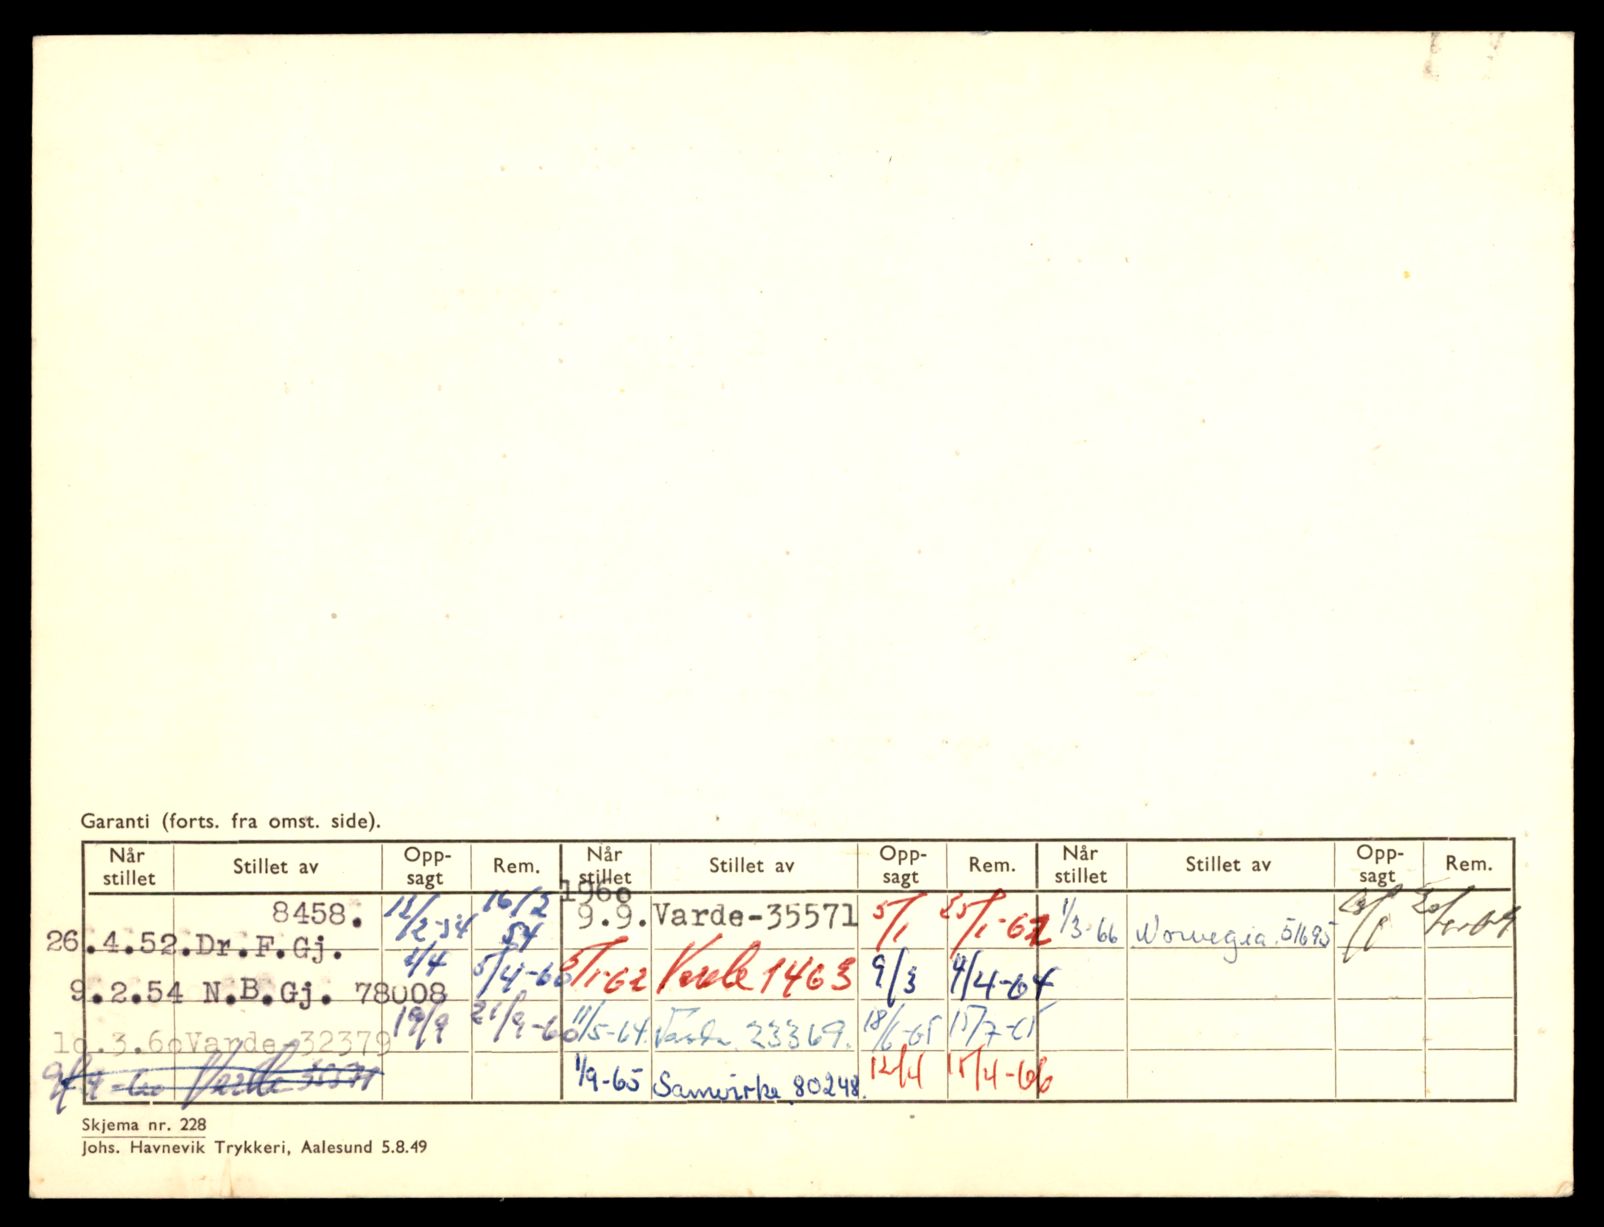 Garanti (forts. fra omst. side).
Når stillet Stillet av Opp-sagt Rem. Når stillet Stillet av Opp-sagt Rem. Når stillet Stillet av Opp-sagt Rem.
8458. 12/2-54 16/2 54 1960 9.9. Varde-35571 5/1 25/1-62 1/3-66 Norwegia 51695
26.4.52. Dr.F.Gj.
9.2.54 N.B.Gj. 78008 1/4 5/4-60 5/1-62 Varde 1463 9/3 4/4-64
10.3.60 Varde 32379 19/9 21/9-60 11/5-64 Varde 23369. 18/6-65 15/7-65
9/9-60 Varde 35571 1/9-65 Samvirke 80248. 12/4 15/4-66
Skjema nr. 228
Johs. Havnevik Trykkeri, Aalesund 5.8.49